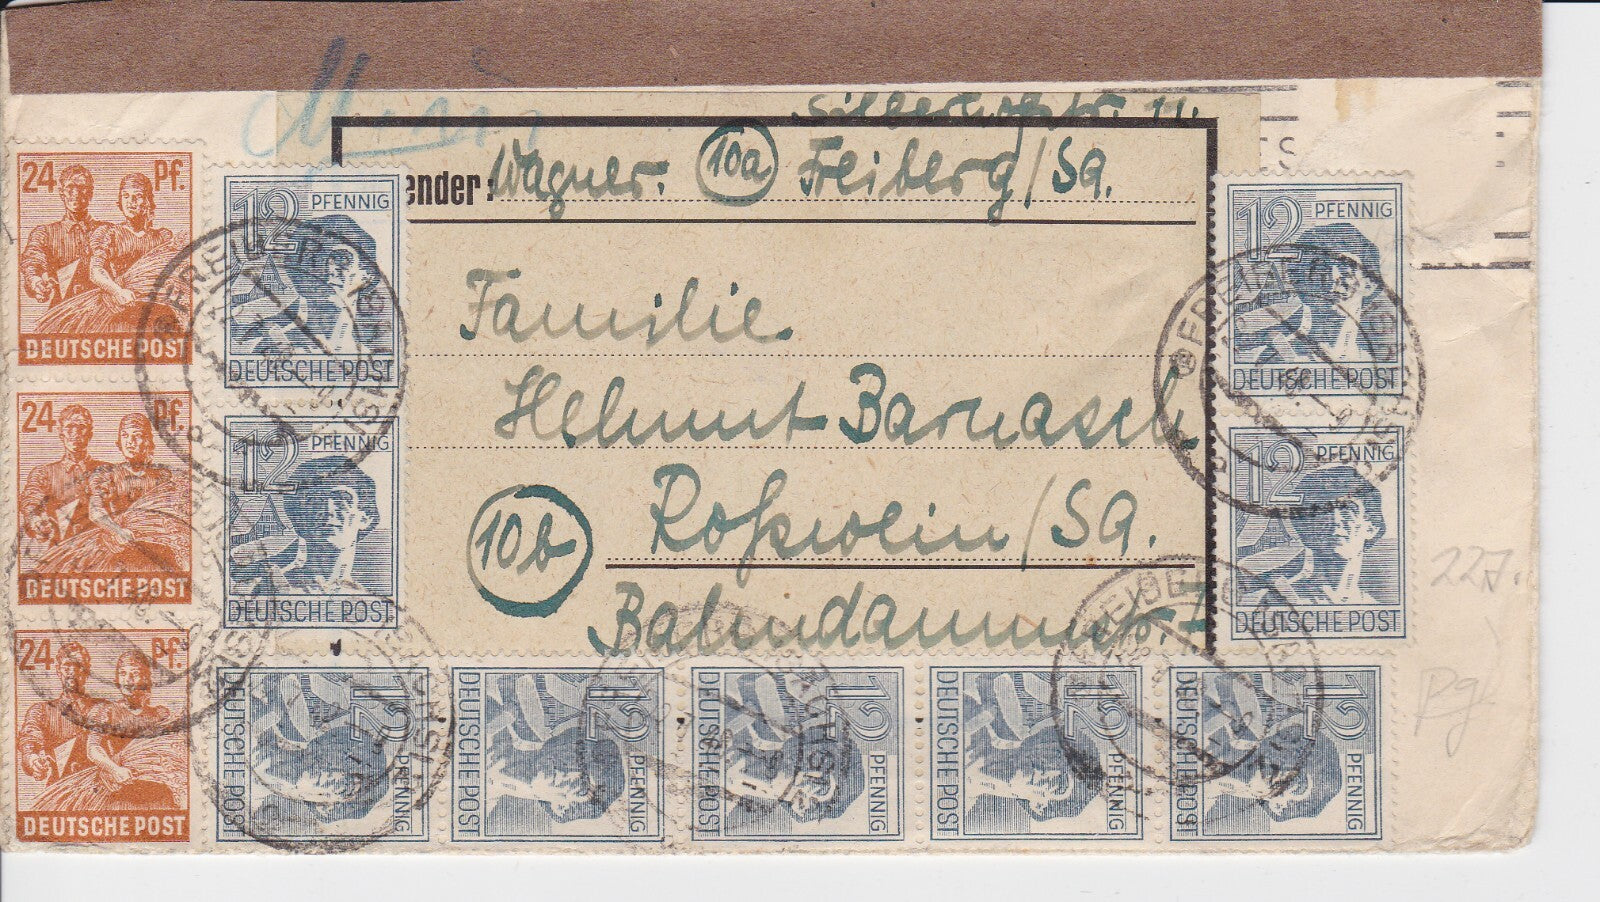 Silberhofstr. 11.
ender: Wagner. 10a Freiberg/Sa.
Familie
Helmut Barnasch
10b Roßwein/Sa.
Bahndammstr. 7
24 Pf.
DEUTSCHE POST
24 Pf.
DEUTSCHE POST
24 Pf.
DEUTSCHE POST
12 PFENNIG
DEUTSCHE POST
12 PFENNIG
DEUTSCHE POST
12 PFENNIG
DEUTSCHE POST
12 PFENNIG
DEUTSCHE POST
12 PFENNIG
DEUTSCHE POST
12 PFENNIG
DEUTSCHE POST
12 PFENNIG
DEUTSCHE POST
12 PFENNIG
DEUTSCHE POST
12 PFENNIG
DEUTSCHE POST
FREIBERG
FREIBERG
FREIBERG
pg